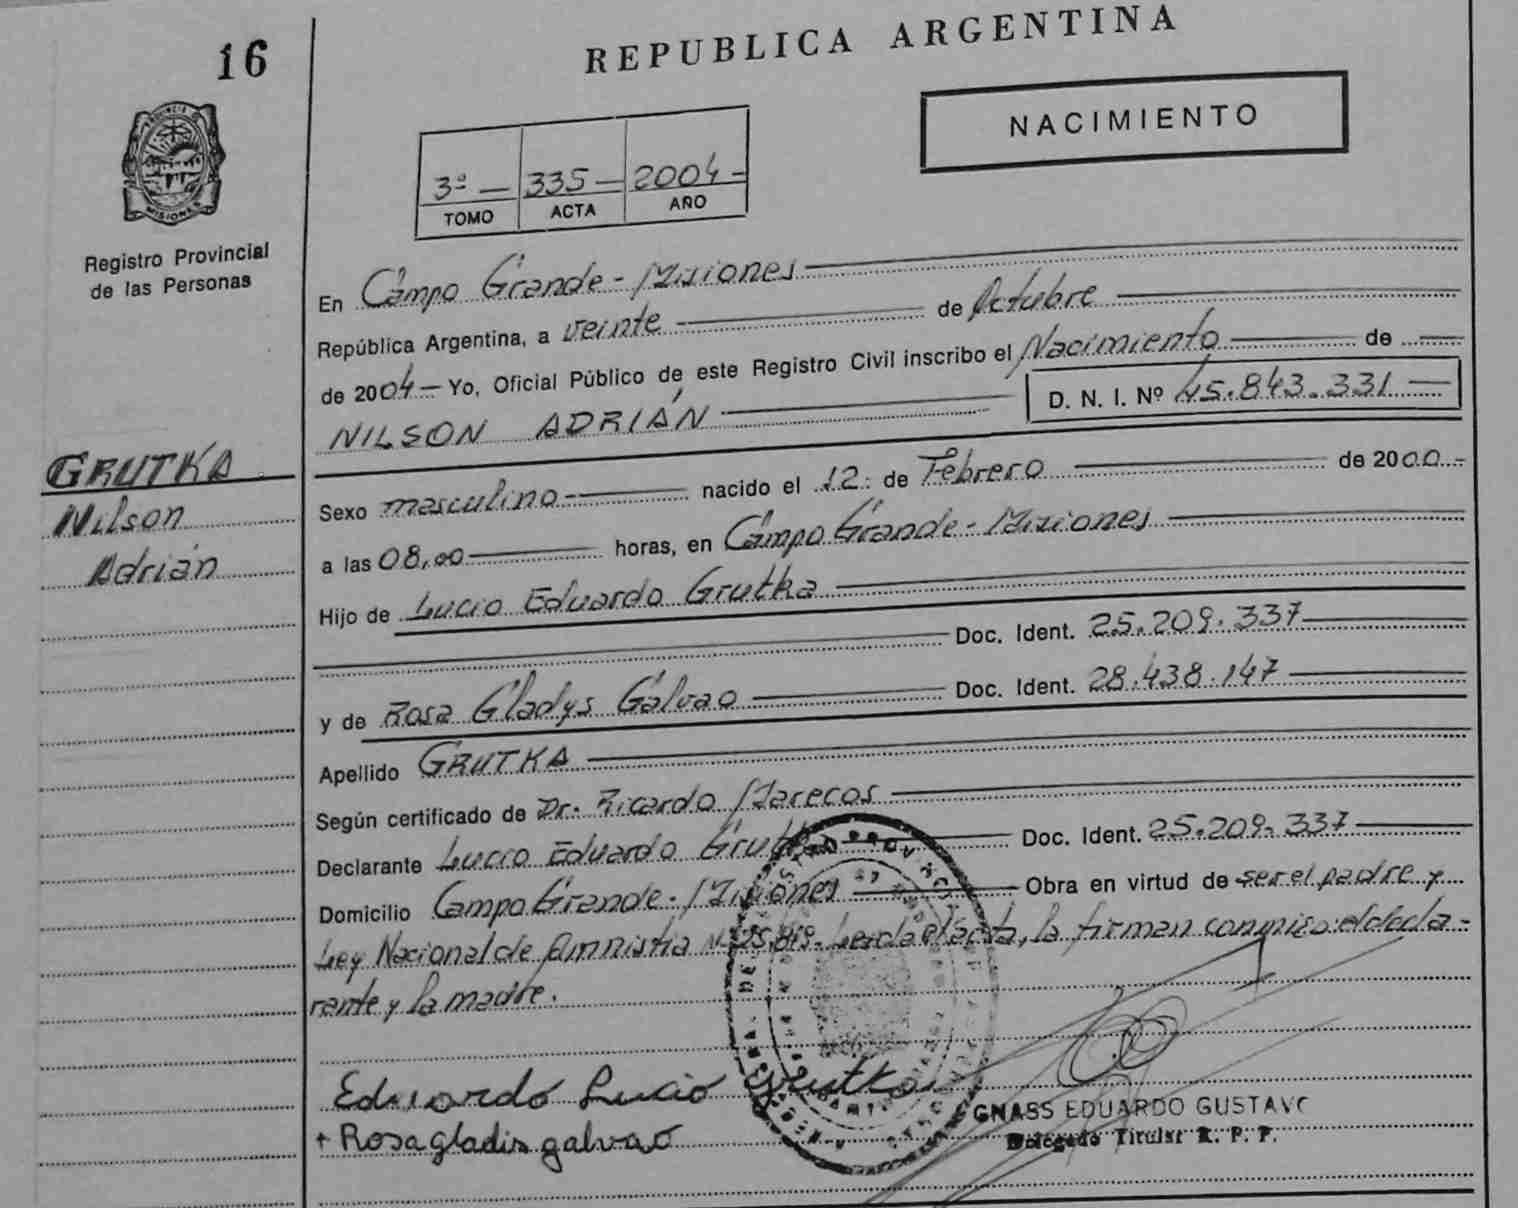 16
REPUBLICA ARGENTINA
NACIMIENTO
3º — 335 — 2004 -
TOMO ACTA AÑO
MISIONES
Registro Provincial
de las Personas
En Campo Grande - Misiones
República Argentina, a veinte de Octubre
de 2004 — Yo, Oficial Público de este Registro Civil inscribo el Nacimiento de
NILSON ADRIÁN D. N. I. Nº 45.843.331
GRUTKA
Nilson
Adrián
Sexo masculino nacido el 12 de Febrero de 2000 -
a las 08,00 horas, en Campo Grande - Misiones
Hijo de Lucio Eduardo Grutka
Doc. Ident. 25.209.337
y de Rosa Gladys Galvao Doc. Ident. 28.438.147
Apellido GRUTKA
Según certificado de Dr. Ricardo Marecos
Declarante Lucio Eduardo Grutka Doc. Ident. 25.209.337
Domicilio Campo Grande - Misiones Obra en virtud de ser el padre y
Ley Nacional de Amnistia Leida el acta, la firman conmigo el decla-
rante y la madre.
Eduardo Lucio Grutka
+ Rosa gladis galvao
GNASS EDUARDO GUSTAVO
Delegado Titular R. P. P.